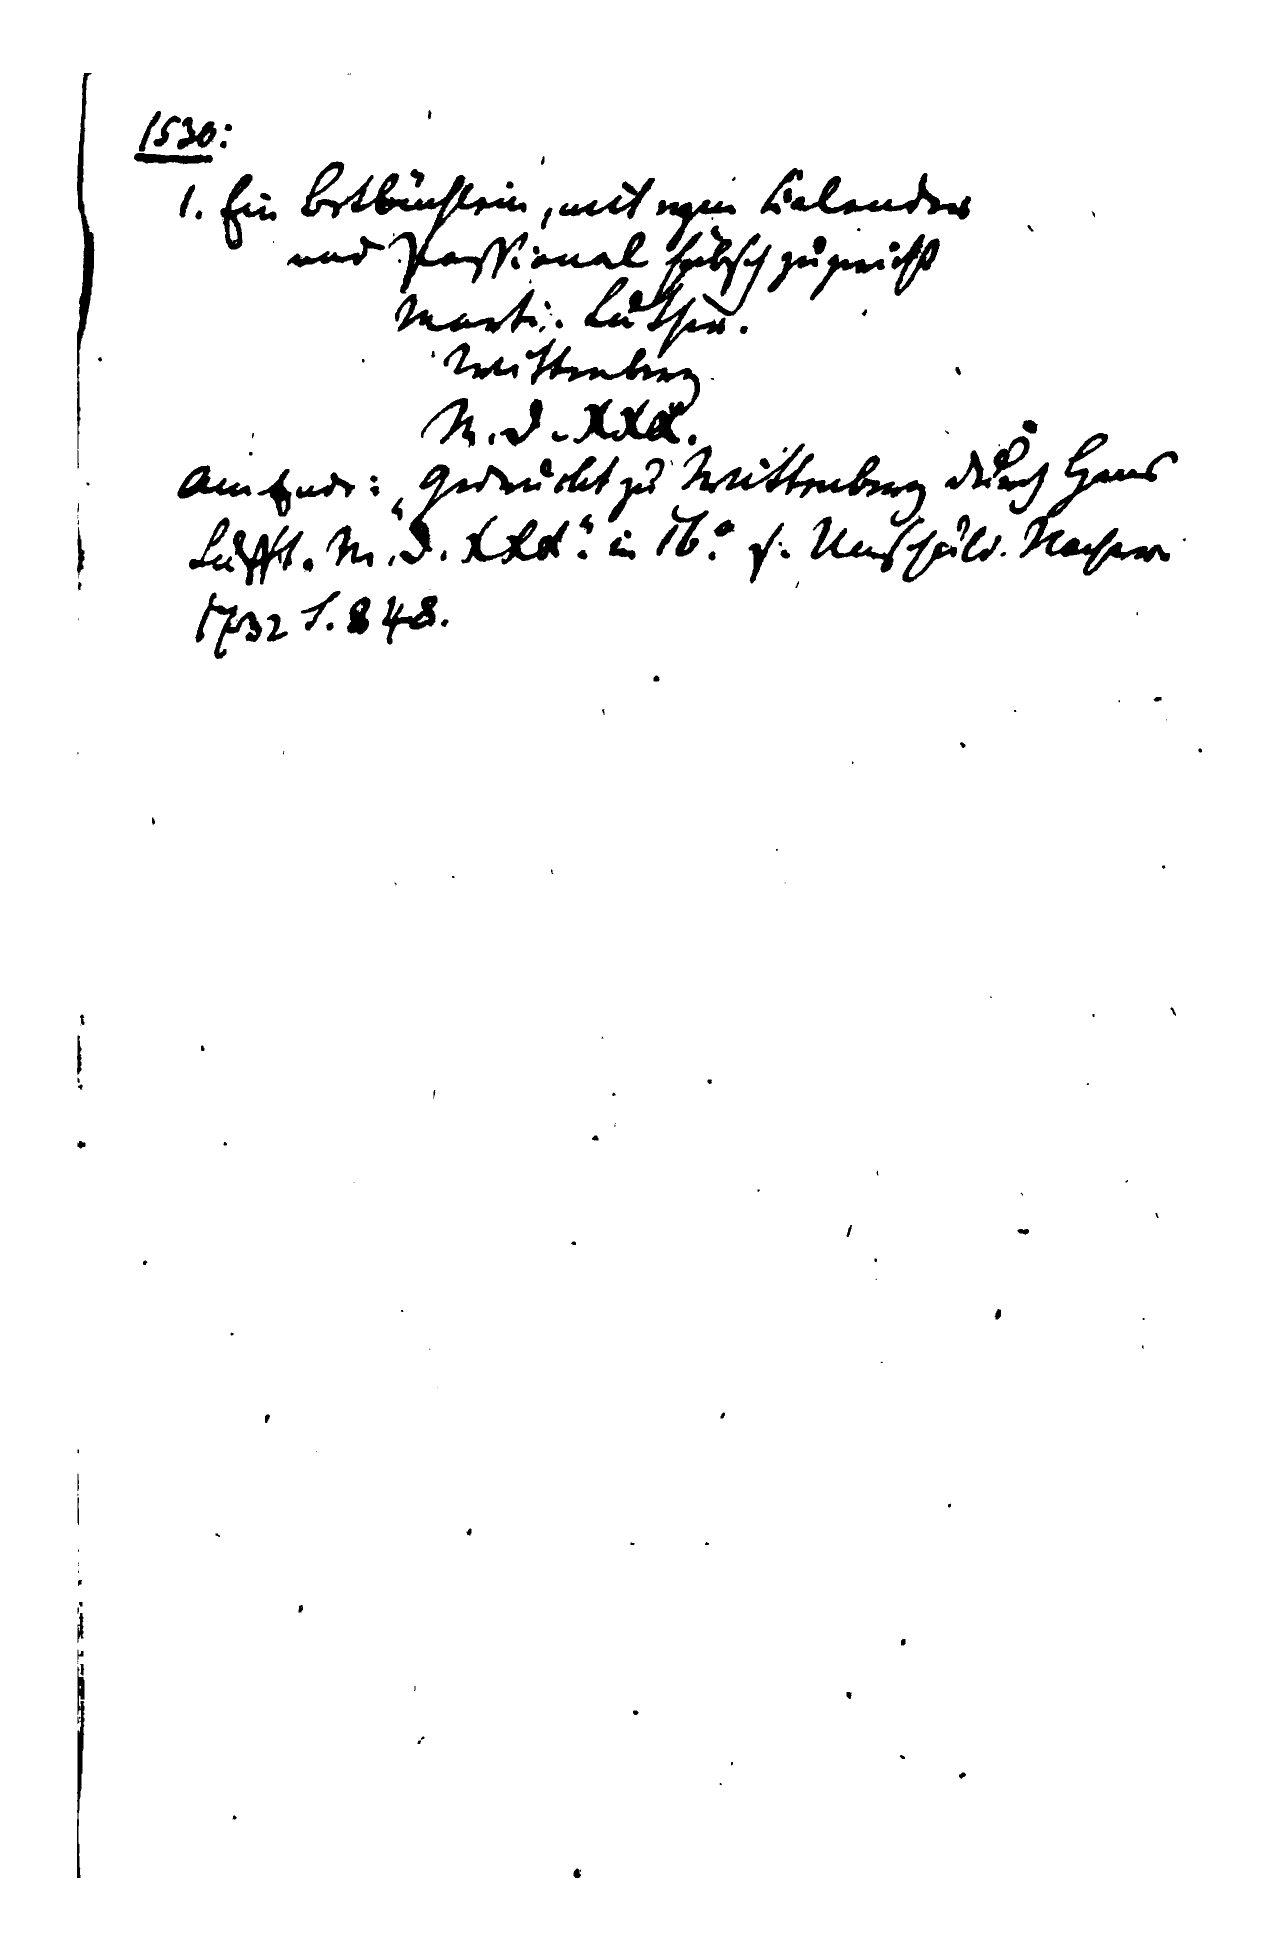 1530:
1. Ein Betbüchlein, mit eym Calender
und Passional hübsch zugericht
Marti. Luther.
Wittenberg
M.D.XXX.
Am Ende: „Gedruckt zu Wittenberg durch Hans
Lufft. M.D.XXX." in 16.° s. Unschuld. Nachr.
1732 S. 848.